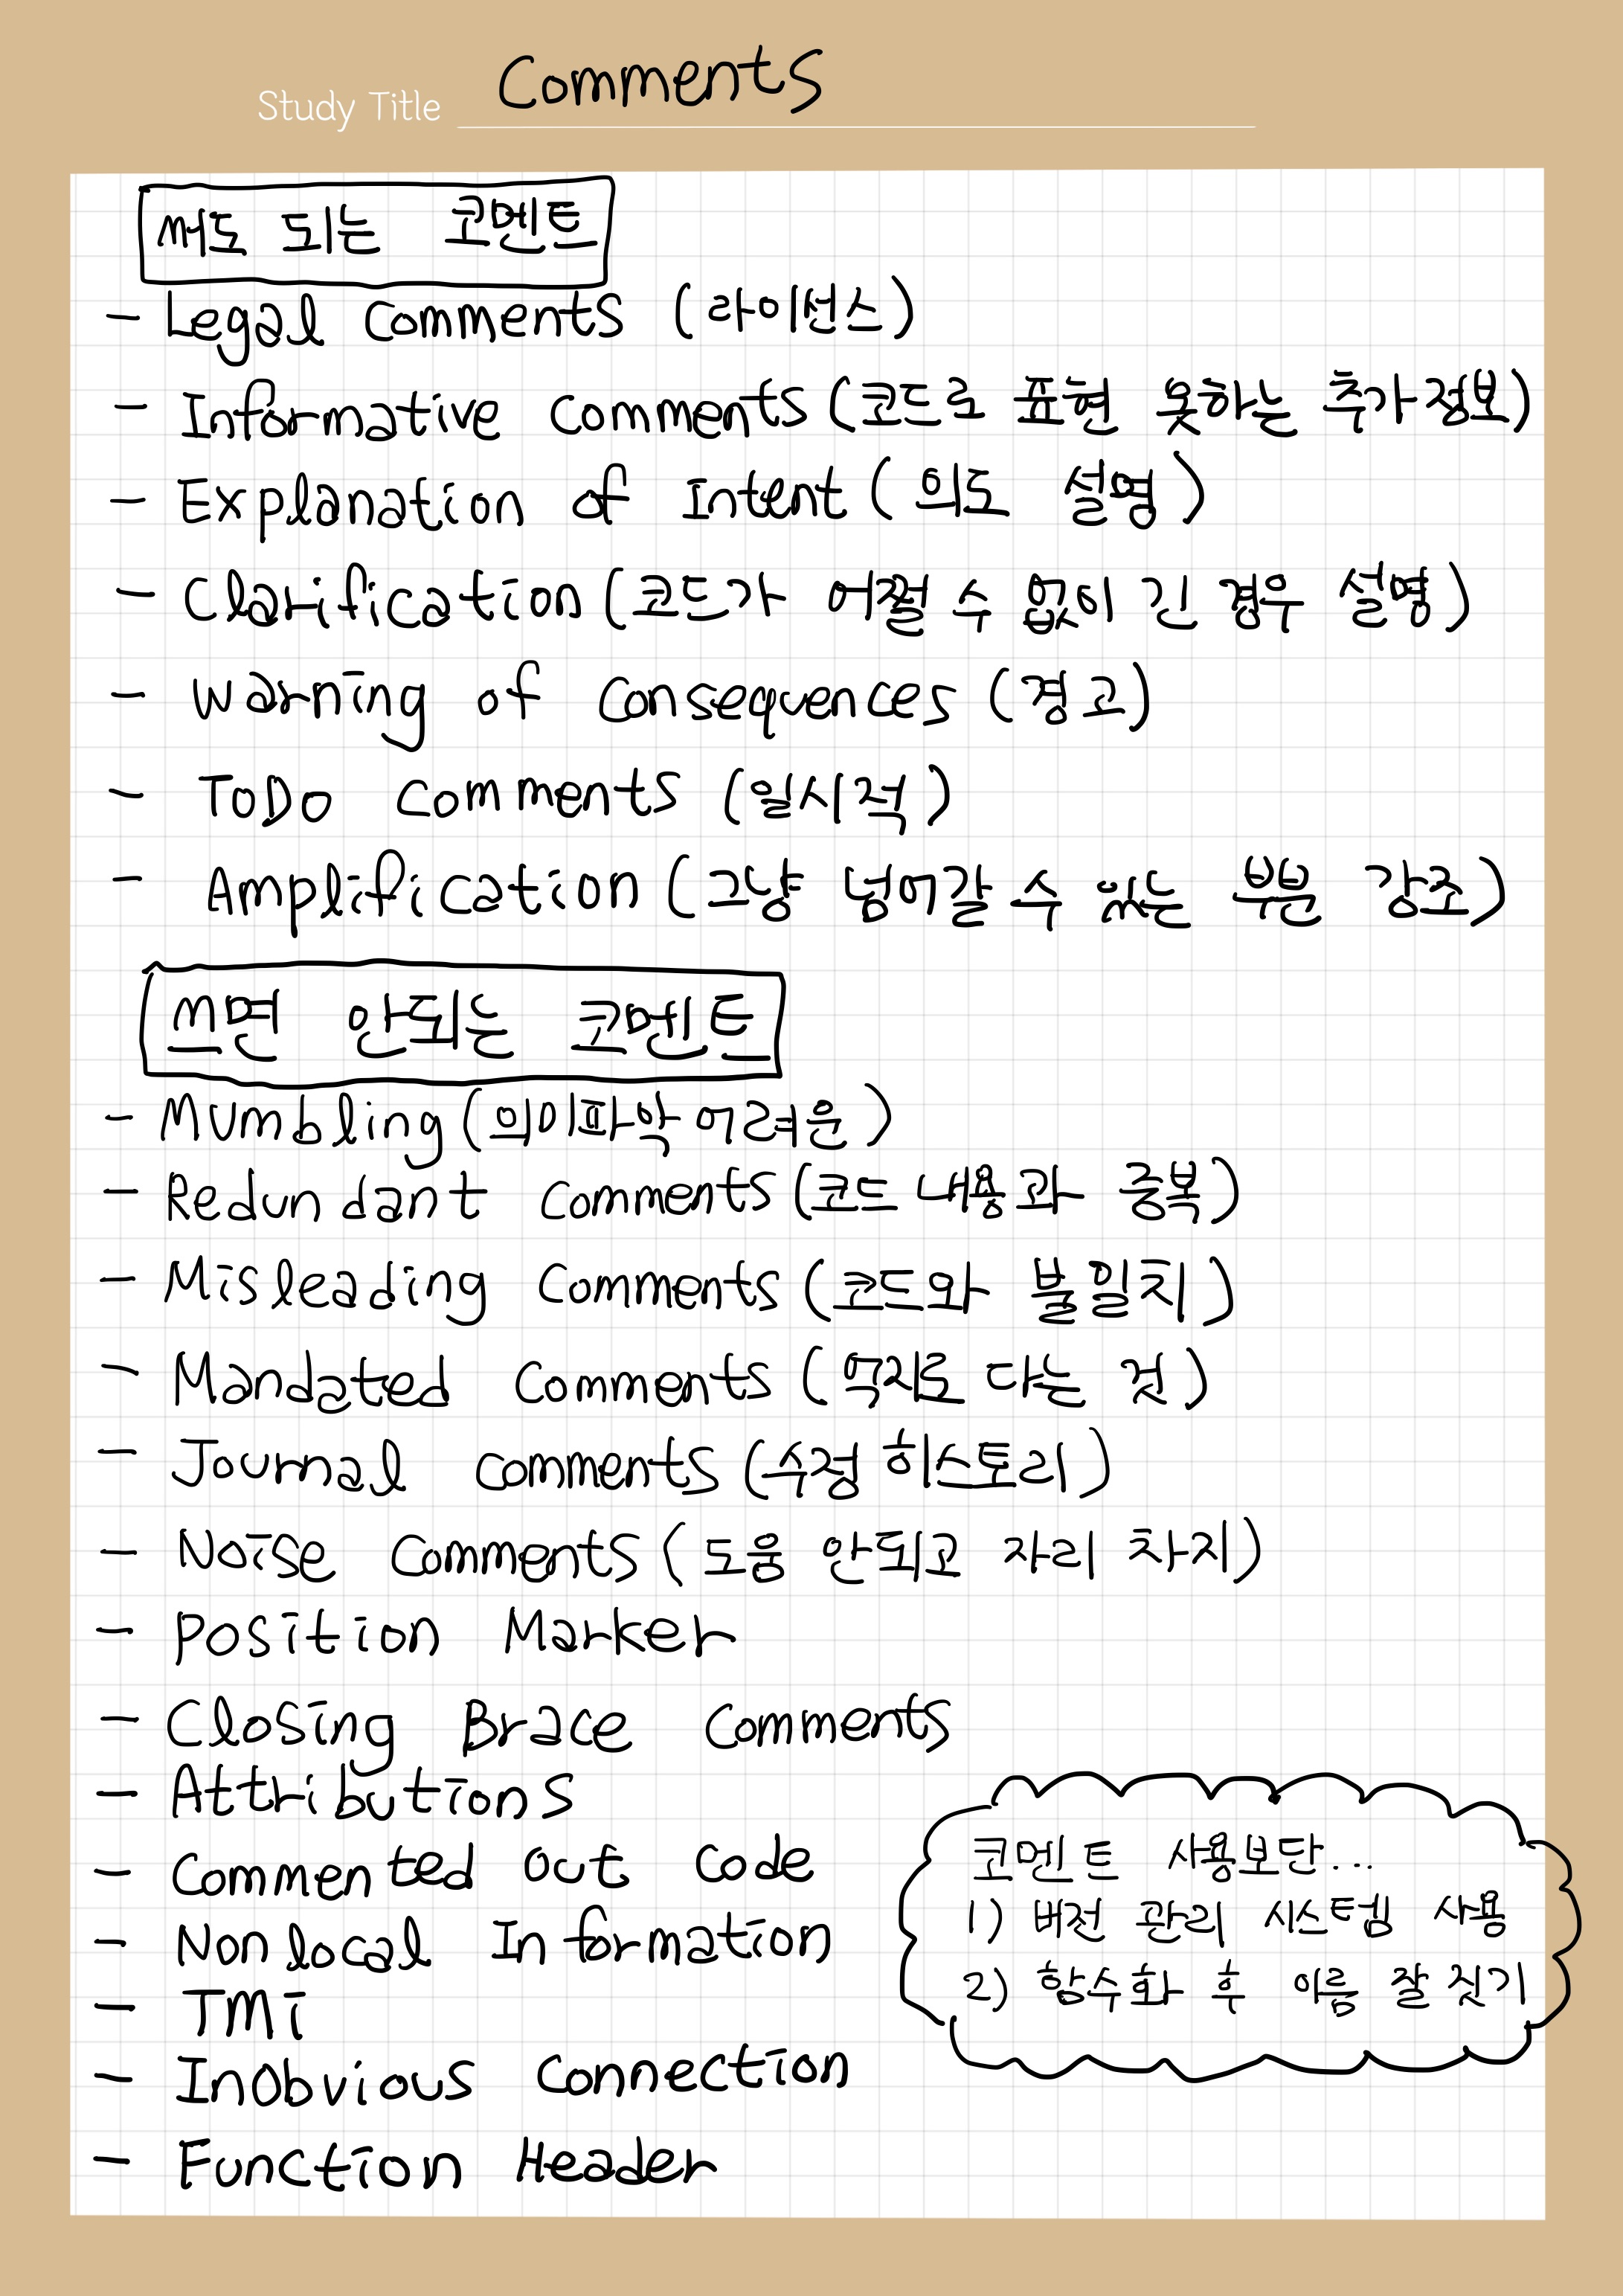 Study Title Comments
써도 되는 코멘트
- Legal Comments (라이센스)
- Informative Comments (코드로 표현 못하는 추가정보)
- Explanation of Intent (의도 설명)
- Clarification (코드가 어쩔 수 없이 긴 경우 설명)
- Warning of Consequences (경고)
- ToDo Comments (일시적)
- Amplification (그냥 넘어갈 수 있는 부분 강조)
쓰면 안되는 코멘트
- Mumbling (의미파악 어려운)
- Redundant Comments (코드 내용과 중복)
- Misleading Comments (코드와 불일치)
- Mandated Comments (억지로 다는 것)
- Journal Comments (수정 히스토리)
- Noise Comments (도움 안되고 자리 차지)
- Position Marker
- Closing Brace Comments
- Attributions
- Commented Out Code
- Nonlocal Information
- TMi
- InObvious Connection
- Function Header
코멘트 사용보단...
1) 버전 관리 시스템 사용
2) 함수화 후 이름 잘 짓기